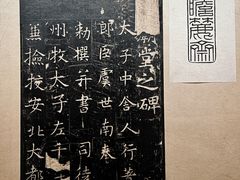 堂之碑
太子中舍人行著
郎臣虞世南奉
勅撰并書 司徒
州牧太子左千
兼撿挍安北大都